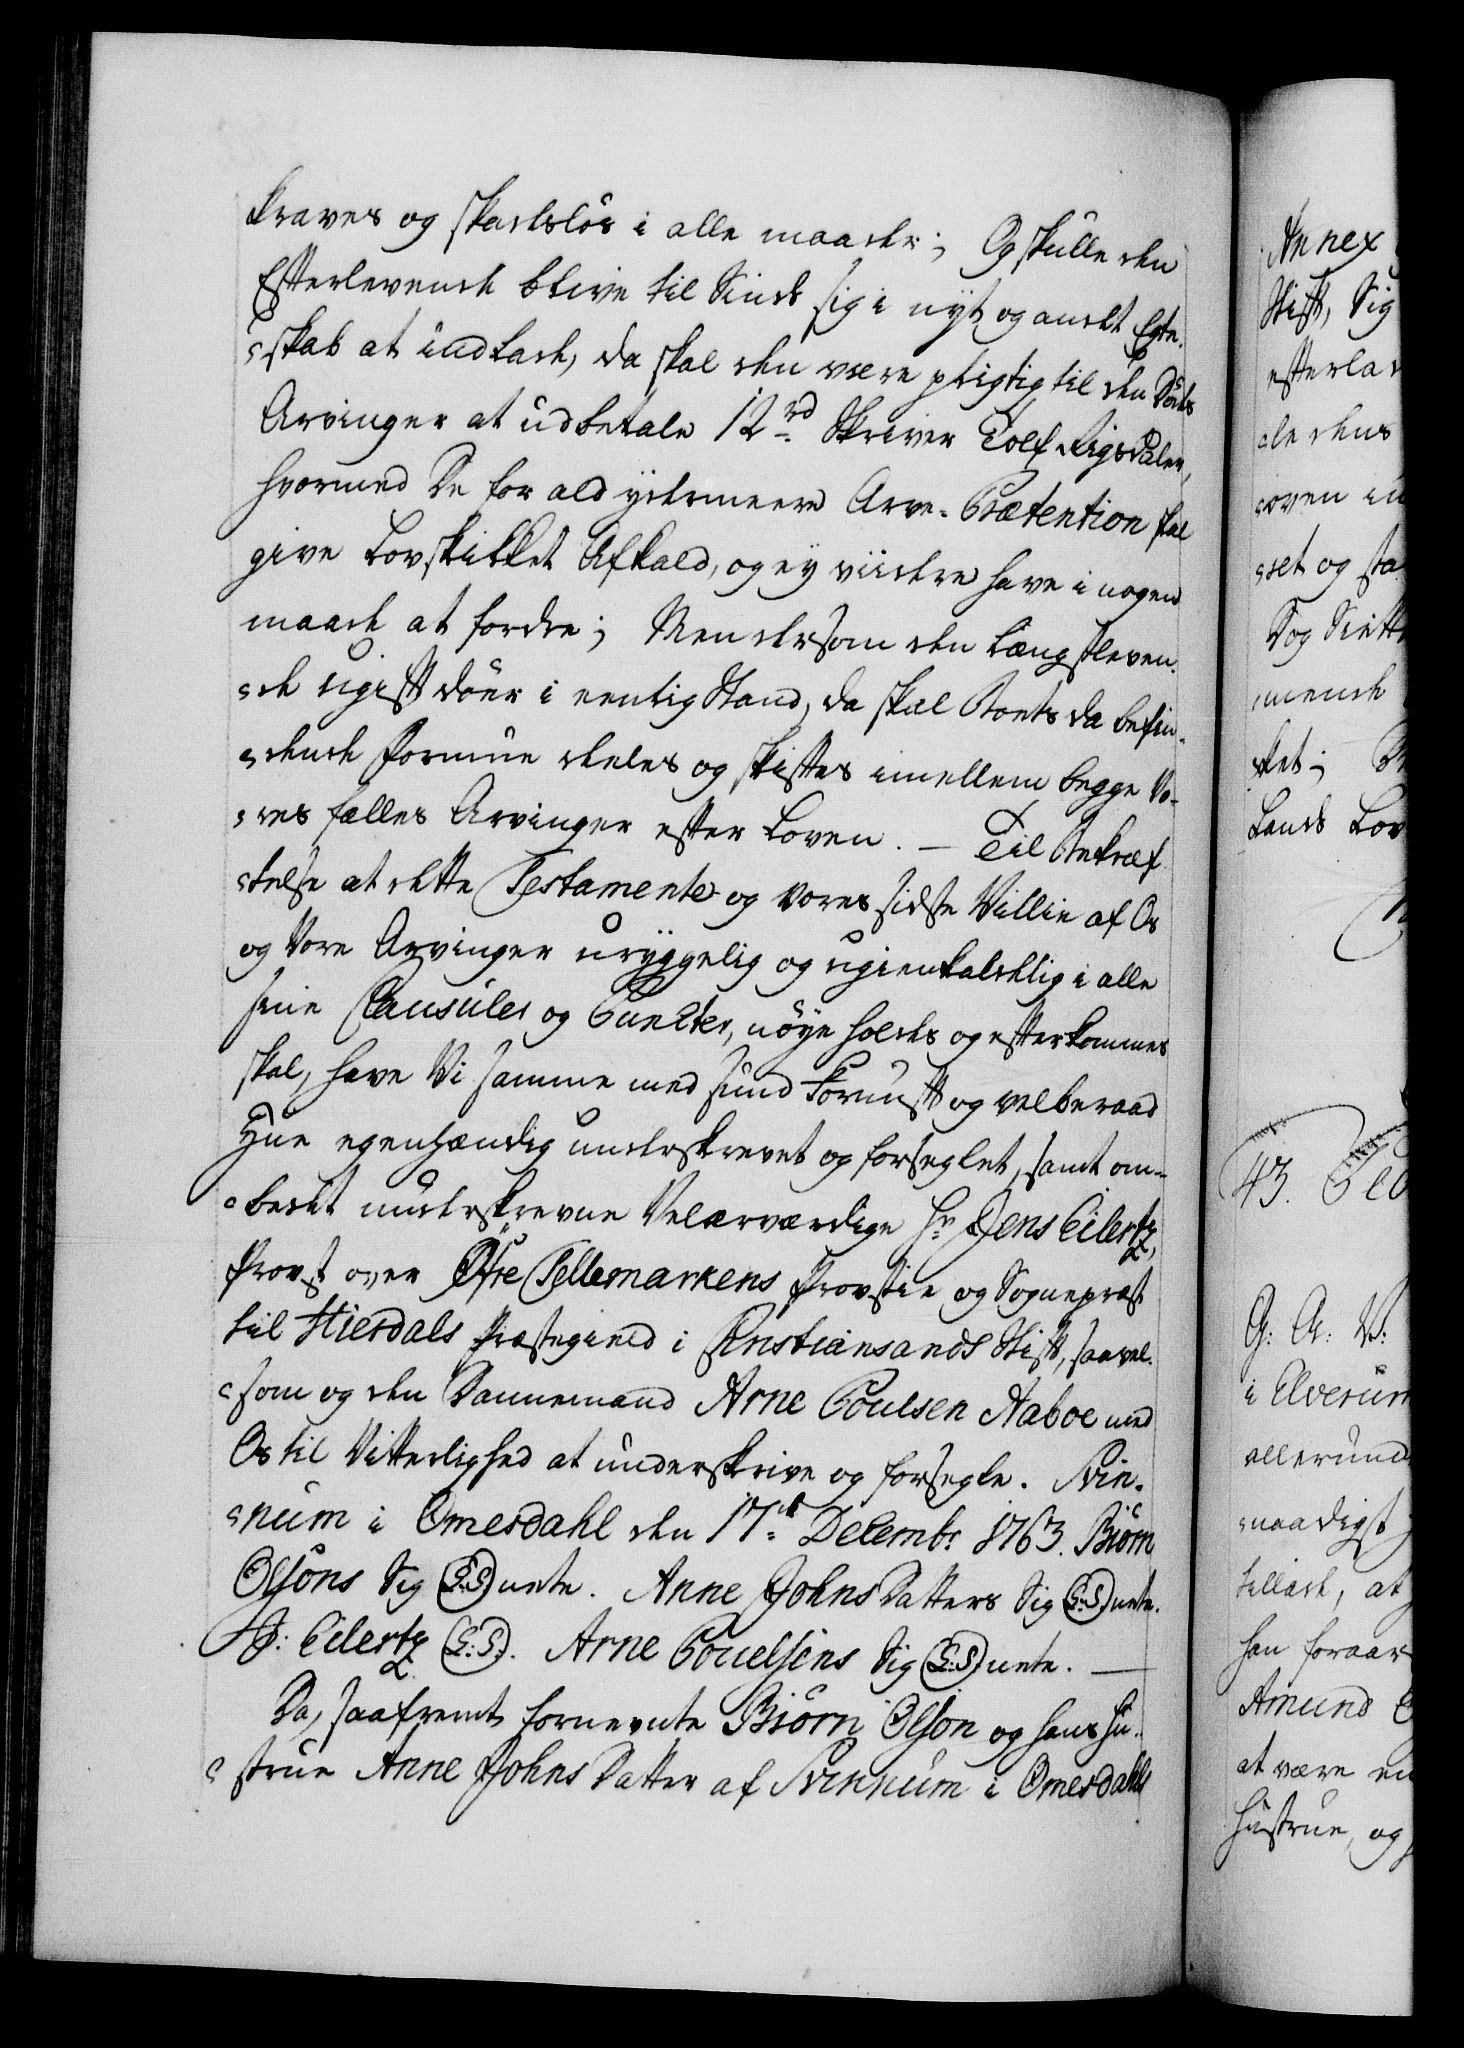 kraves og skadesløs i alle maader; Og skulle den
Efterlevende blive til Sinds sig i nyt og andet Egte-
skab at indlade, da skal den være pligtig til den Dødes
Arvinger at udbetale 12 rd Skriver Tolf Rigsdaler,
hvormed De for ald ydermeere Arve-Prætention skal
give Lovskikket Afkald, og ey viidere have i nogen
maade at fordre; Men dersom den Længstleven-
de ugift døer i eenlig Stand, da skal Boets da befin-
dende Formue deeles og skiftes imellem begge Vo-
res fælles Arvinger efter Loven. – Til Bekræf-
telse at dette Testamente og vores sidste Villie af Os
og Vore Arvinger uryggelig og ugienkaldelig i alle
sine Clausuler og Puncter, nøye holdes og efterkommes
skal, have Vi samme med sund Fornuft og velberaad
Hue egenhændig underskrevet og forseglet, samt om-
bedet underskrevne Velærværdige Hr Jens Eilertz,
Provst over Øfre Tellemarkens Provstie og Sognepræst
til Hierdals Præstegield i Christiansands Stift, saavel-
som og den Dannemand Arne Poulsen Aaboe med
Os til Vitterlighed at underskrive og forsegle. Svin-
num i Omesdahl den 17de Decembr 1763. Biørn
Olsøns Sig (L.S.) nete. Anne JohnsDatters Sig (L.S.) nete.
J: Eilertz (L:S:). Arne Pouelsens Sig (L.S.) nete. —
Da, saafremt fornevnte Biørn Olson og hans Hu-
strue Anne Johns Datter af Svinnum i Omesdahls
Annex
Stift, Sig
efterla
de dens
oven in
set og sta
Dog Sætt
mende
ket;
Lands Lov
43.
G: A: V:
i Elverum
allerund
naadigst
tillade, at
han foraar
Amund
at være en
Hustrue, og